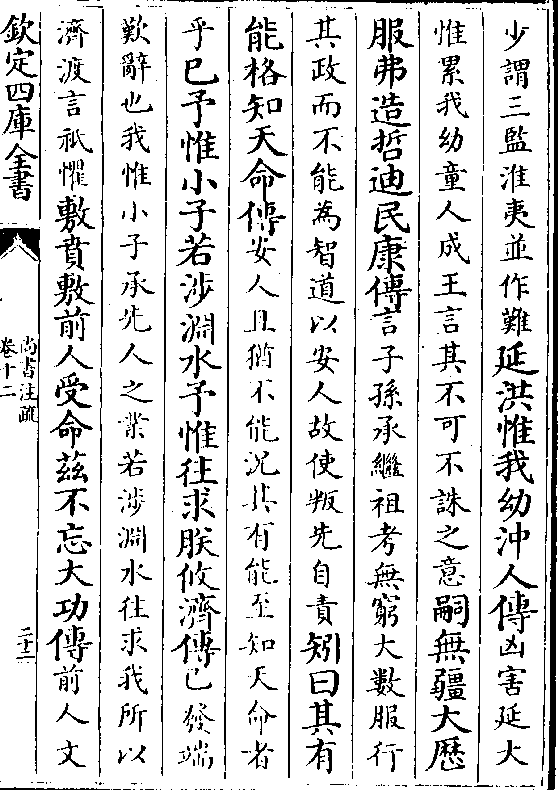 少謂三監淮夷並作難延洪惟我幼沖人傳凶害延大
惟累我幼童人成王言其不可不誅之意嗣無疆大歷
服弗造哲迪民康傳言子孫承繼祖考無窮大數服行
其政而不能為智道以安人故使叛先自責矧曰其有
能格知天命傳安人且猶不能况其有能至知天命者
乎已予惟小子若涉淵水予惟往求朕攸濟傳已發端
歎辭也我惟小子承先人之業若涉淵水往求我所以
濟渡言祗懼敷賁敷前人受命茲不忘大功傳前人文
欽定四庫全書
尚書注疏
卷十二
二十二